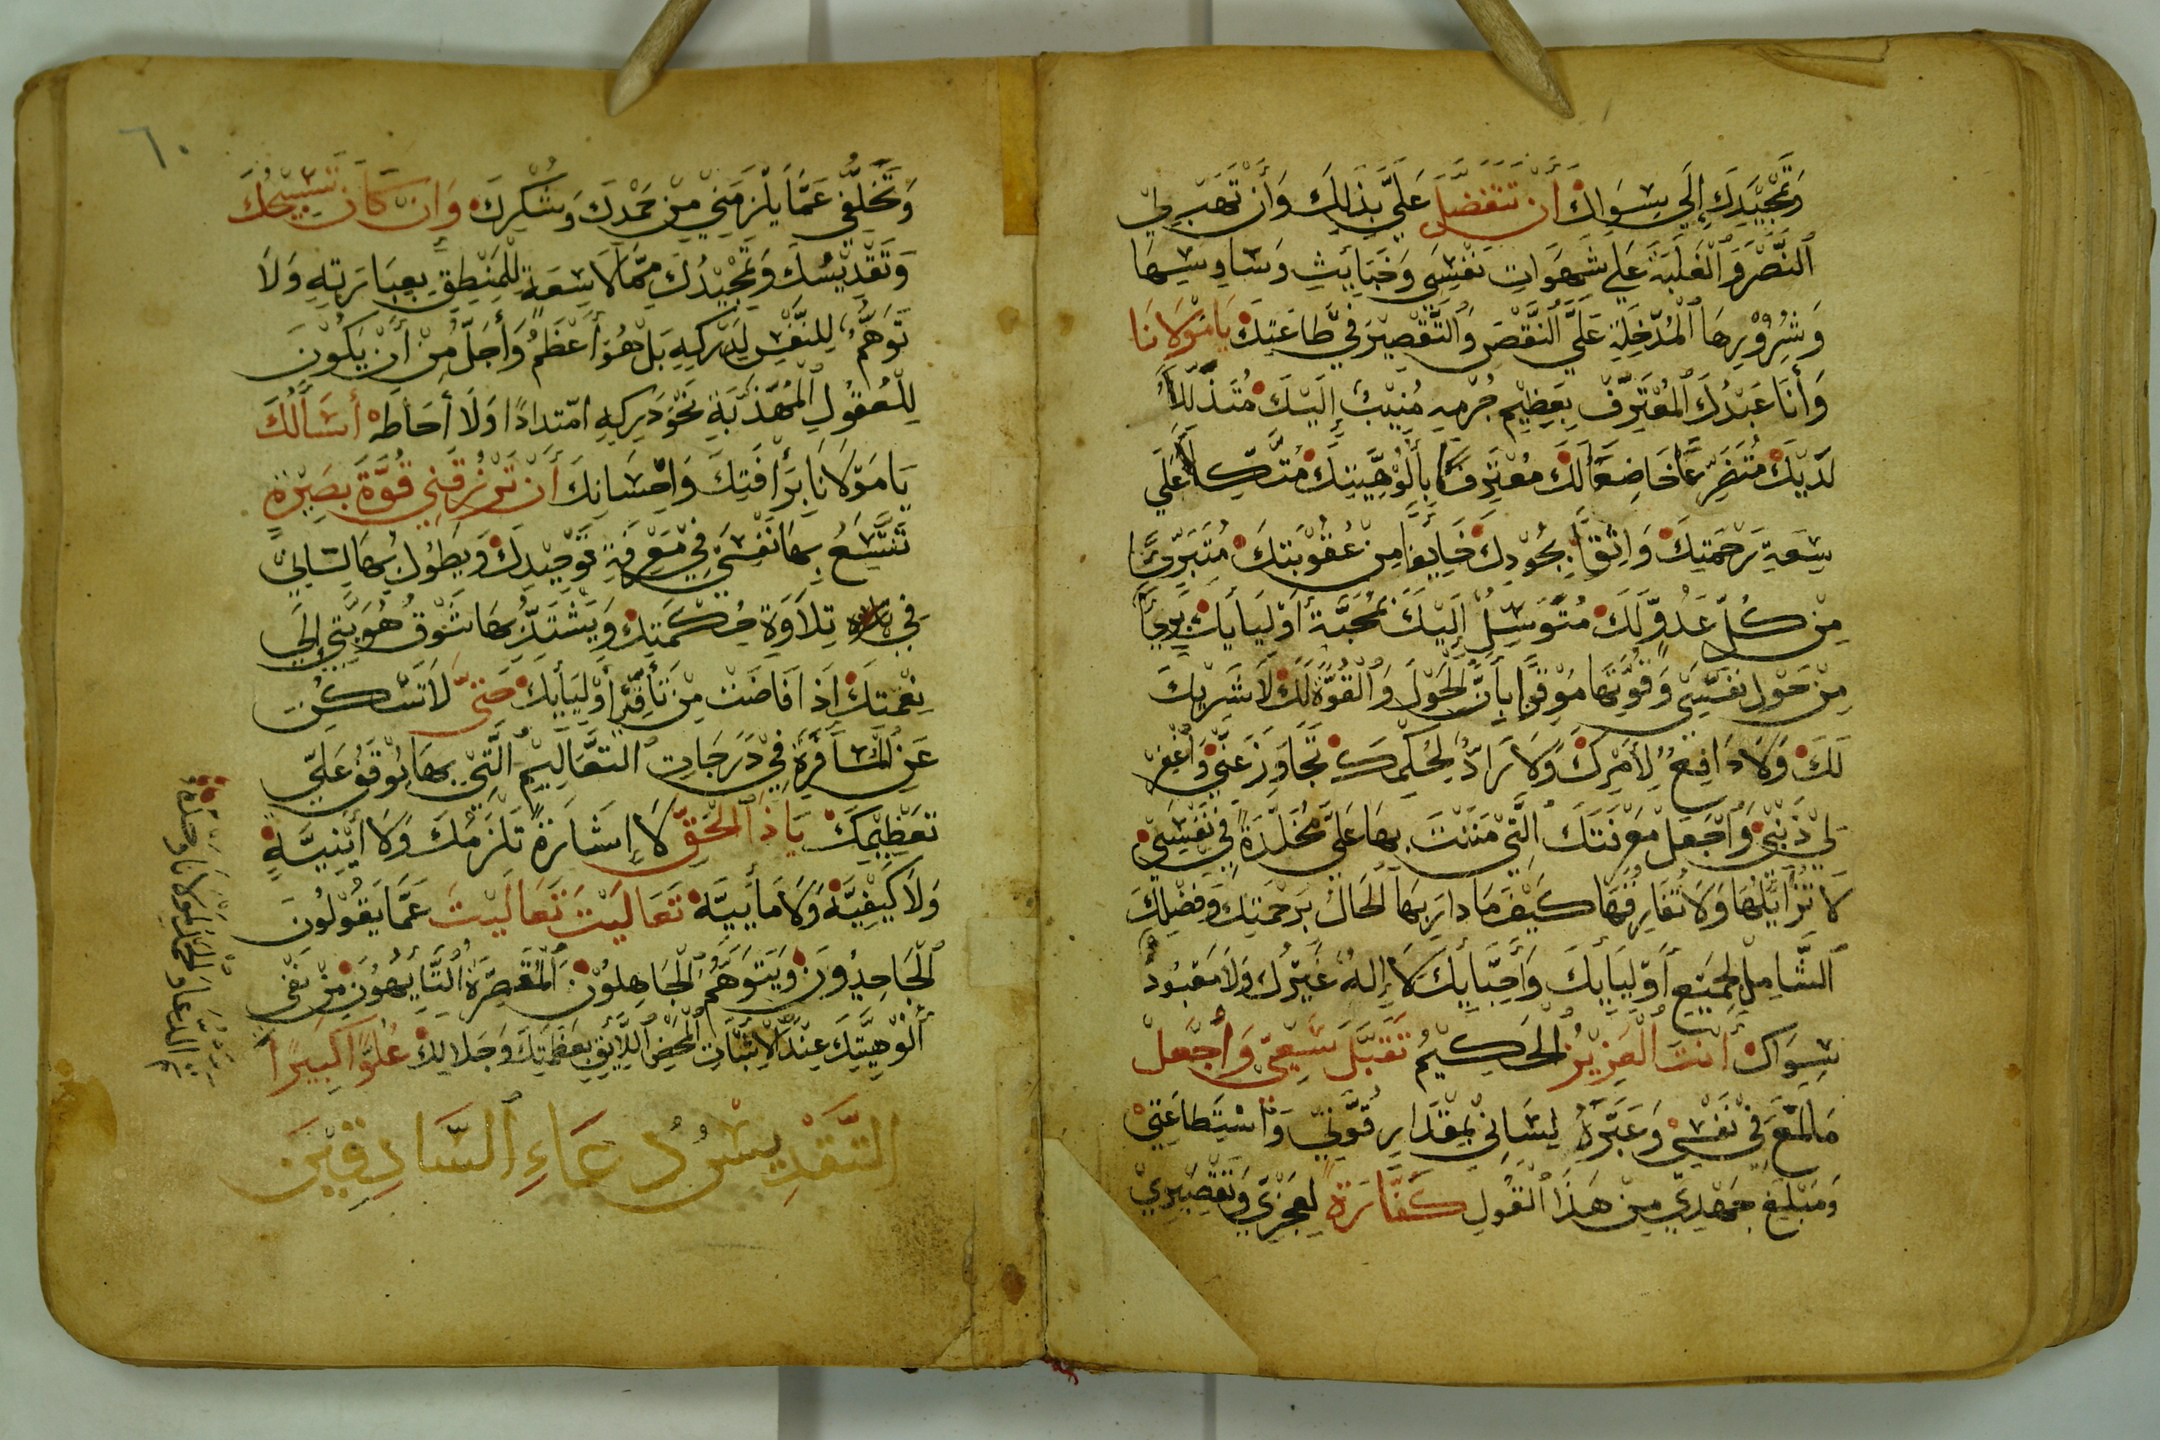 وَتَمْجِيَدِكَ إِلَي سِوَاكَ أَن تتَفَضَّلَ عَلَيَّ بِذَلِكَ وَأَن تَهَب لِيْ
ٱلنَّصْرَ وَٱلْغَلَبَةَ عَلَي شَهَوَاتِ نَفْسِي وَخَبَايِثِ وَسَاوِسِهَا
وَشُرُوْرِهَا ٱلْمُدْخِلَةِ عَلَيَّ ٱلنَّقْصَ وَٱلتَّقْصِيْرَ فِيْ طَاعَتِكَ يَا مَوْلَانَا
وَأَنَا عَبْدُكَ ٱلْمُعْتَرِفُ بِعَظِيْمِ جُرْمِهِ مُنِيْبٌ إِلَيْكَ مُتَذَلِّلاً
لَدَيْكَ مُتَضَرِّعًا خَاضِعًا لَكَ مُعْتَرِفًا بِأُلُوْهِيَّتِكَ مُتَّكِلاً عَلَي
سِعَةِ رَحْمَتِكَ وَاثِقًا بِجُوْدِكَ خَايِفًا مِنْ عُقُوْبَتِكَ مُتَبَرِّئًا
مِنْ كُلِّ عَدُوٍّ لَكَ مُتَوَسِّلٌ إِلَيْكَ بِمُحَبَّةِ أَوْلِيَايِكَ بَرِيًّا
مِنْ حَوْلِ نَفْسِيْ وَقُوَّتِهَا مُوْقِنًا بِأَنَّ ٱلْحَوْلَ وَٱلْقُوَّةَ لَكَ لَا شَرِيْكَ
لَكَ وَلَا دَافِعُ لِأَمْرِكَ وَلَا رَادُّ لِحُكْمِكَ تَجَاوَزْ عَنِّيْ وَٱغْفِرْ
لِيْ ذَنْبِيْ وَٱجْعَلْ مَعُوْنَتَكَ ٱلَّتِيْ مَنَنْتَ بِهَا عَلَيَّ مُخَلَّدَةً فِيْ نَفْسِيْ
لَا تُزَايِلُهَا وَلَا تُفَارِقُهَا كَيْفَ مَا دَارَ بِهَا ٱلْحَالُ بِرَحْمَتِكَ وَفَضْلِكَ
ٱلشَّامِلِ لِجَمِيْعِ أَوْلِيَايِكَ وَأَحِبَّايِكَ لَا إِلهُ غَيْرُكَ وَلَا مَعْبُودُ
سِوَاكَ أَنْتَ ٱلْعَزِيْزُ ٱلْحَكِيْمُ تَقَبَّلْ سَعِيَّ وَٱجْعَلْ
مَا لَمَعَ فِيْ نَفْسِيْ وَعَبَّرَهُ لِسَانِيْ بِمِقْدَارِ قُوَّتِيْ وَٱسْتِطَاعَتِيْ
وَمَبْلَغِ جَهْدِيْ مِنْ هَذَا ٱلْقَولِ كَفَّارَةً لِعَجْزِيْ وَتَقْصِيْرِيْ
٦٠
وَتَخَلُّفِي عَمَّا يَلْزَمَنِيْ مِنْ حَمْدِكَ وَشُكْرِكَ وَإِن كَانَ تَسْبِيْحُكَ
وَتَقْدِيْسُكَ وَتَمْجِيْدُكَ مِمَّا لَا سِعَةً لِلْمَنْطِقِ بِعِبَارَتِهِ وَلَا
تَوَهُّمُ لِلنَّفْسِ لِدَرَكِهِ بَلْ هُوَ أَعْظَمُ وَأَجَلُّ مِنْ أَنْ يَكُوْنَ
لِلْعُقُولِ ٱلْمُهَذَّبَةِ نَحْوَ دَرَكِهِ امْتِدَادًا وَلَا أَحَاطَه أَسْأَلُكَ
يَا مَوْلَانَا بِرَأَفَتِكَ وَاحْسَانِكَ أَنْ تَرْزُقَنِي قُوَّةَ بَصِيْرَةٍ
تَتَّسِعُ بِهَا نَفْسِيْ فِيْ مَعْرِفَةِ تَوْحِيْدِكَ وَيَطُوْلُ بِهَا لِسَانِيْ
فِي تِلَاوَةِ حِكْمَتِكَ وَيَشْتَدُّ بِهَا شَوْقُ هُوِيَّتِيْ إِلَي
نِعْمَتِكَ إِذَا فَاضَتْ مِنْ أَوْلِيَايِكَ حَتَّي لَا تَسْكُنَ
عَنِ ٱلْمُسَافَرَةِ فِيْ دَرَجَاتِ ٱلتَّعَالِيْمِ ٱلَّتِيْ بِهَا يُوْقَفُ عَلَيَ
تَعْظِيْمِكَ يَا ذَا ٱلْحَقِّ لَا إِشَارَةً تَلْزَمُكَ وَلَا أَيْنِيَّةٍ
وَلَا كَيْفِيَّةَ وَلَا مَأيِيَّة تَعَالَيْتَ تَعَالَيْتَ عَمَّا يَقُوْلُونَ
ٱلْجَاحِدُوْنَ وَيَتَوَهَّمُ ٱلْجَاهِلُوْنَ ٱلْمُقَصِّرَةُ ٱلتَّايِهُوْنَ مِنْ نَفْي
أُلُوْهِيَّتِكَ عِنْدَ ٱلْإِثْبَاتِ ٱلْمَحْضِ ٱللَّايِقِ بِعَظَمَتِكَ وَجَلَالِكَ عُلُوًّا كَبِيْرًا
التَّقْدِيْسُ دُعَاءِ ٱلصَّادِقِيْنَ
تم الدعاء والحمد لمولانا وحده